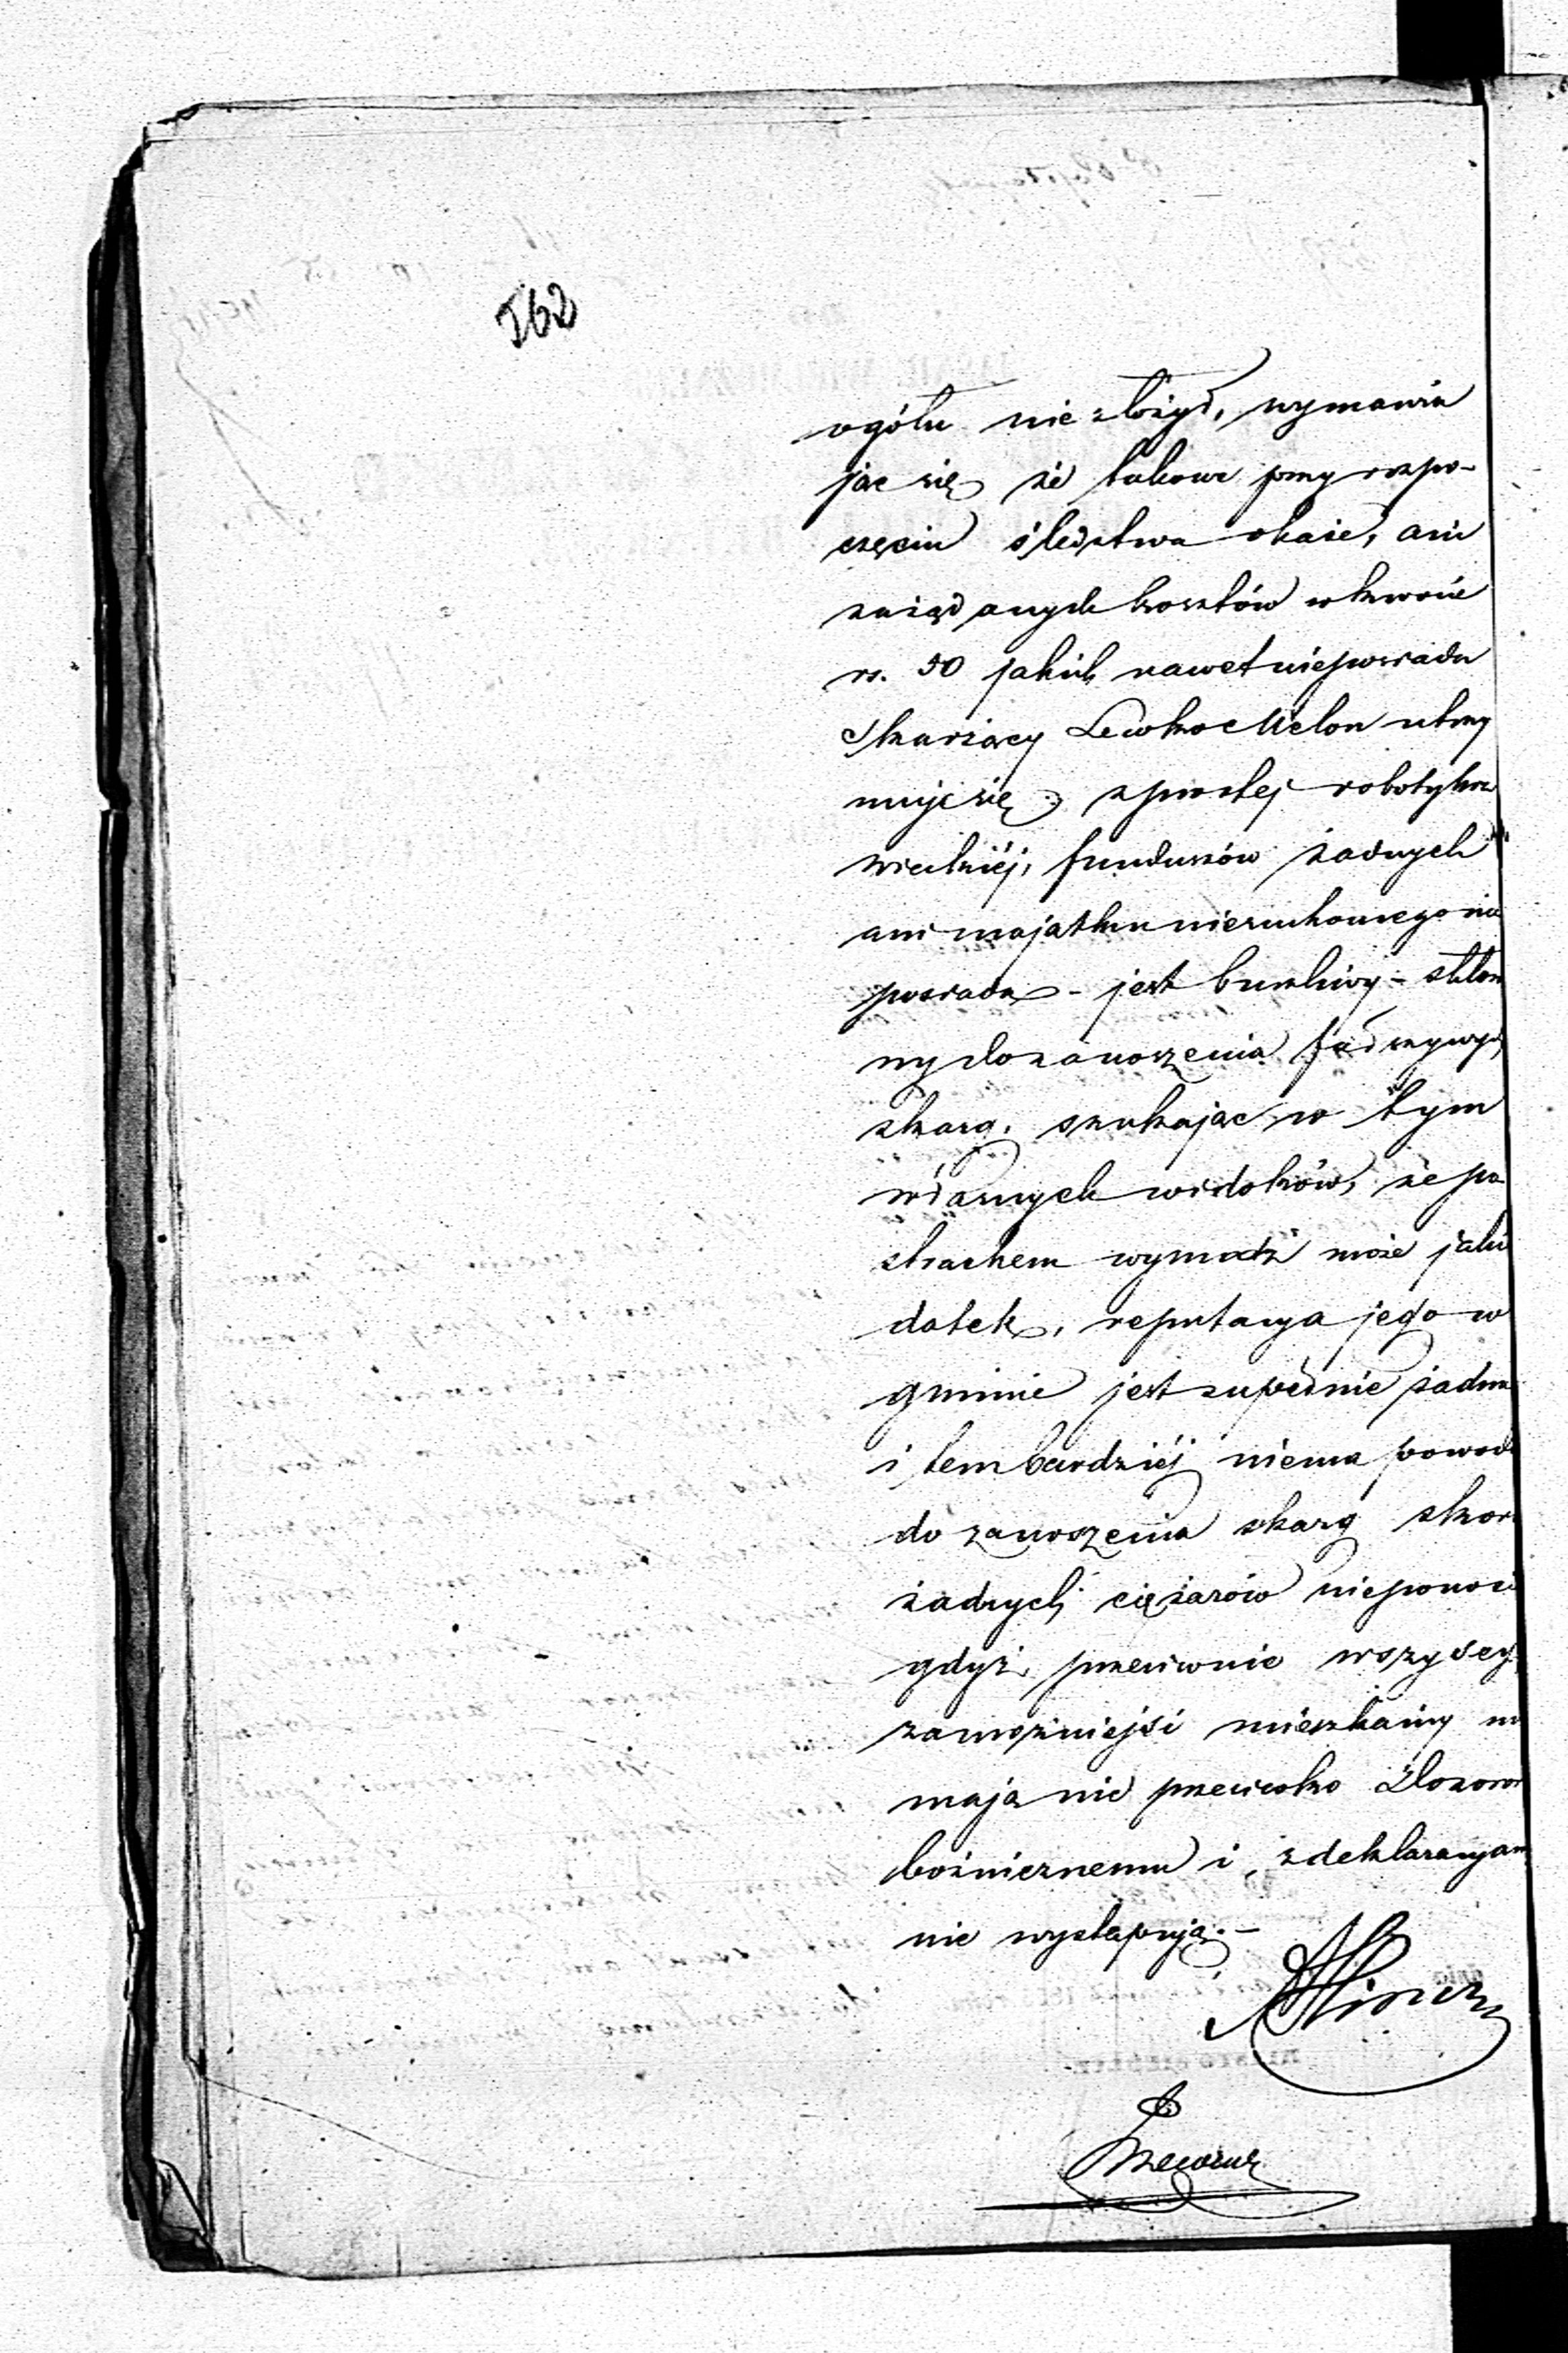 562
ogółu nie złożył, wymawia
jąc się że takowe przy rozpo-
częciu śledztwa okaże, ani
zażądanych kosztów w kwocie
rs. 50 jakich nawet nieposiada
Skarżący Lewko Melon utrzy
muje się z prostej roboty kra
wieckiéj, funduszów żadnych
ani majątku nieruchomego nie
posiada - jest burzliwy - skłon
ny do zanoszenia fałszywych
skarg, szukając w tym
własnych widoków, że po
strachem wymódz może jaki
datek, reputacya jego w
gminie jest zupełnie żadna
i tem bardziéj niema powodu
do zanoszenia skarg skoro
żadnych ciężarów nieponosi
gdyż przeciwnie wszyscy
zamożniejsi mieszkańcy nie
mają nic przeciwko Dozorowi
bóżnicznemu i z deklaracyam
nie występują.-